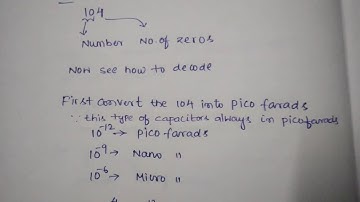 104
Number No. of zeros
Now see how to decode
First convert the 104 into Pico farads
∵ this type of capacitors always in picofarads
10⁻¹² → Pico farads
10⁻⁹ → Nano "
10⁻⁶ → Micro "